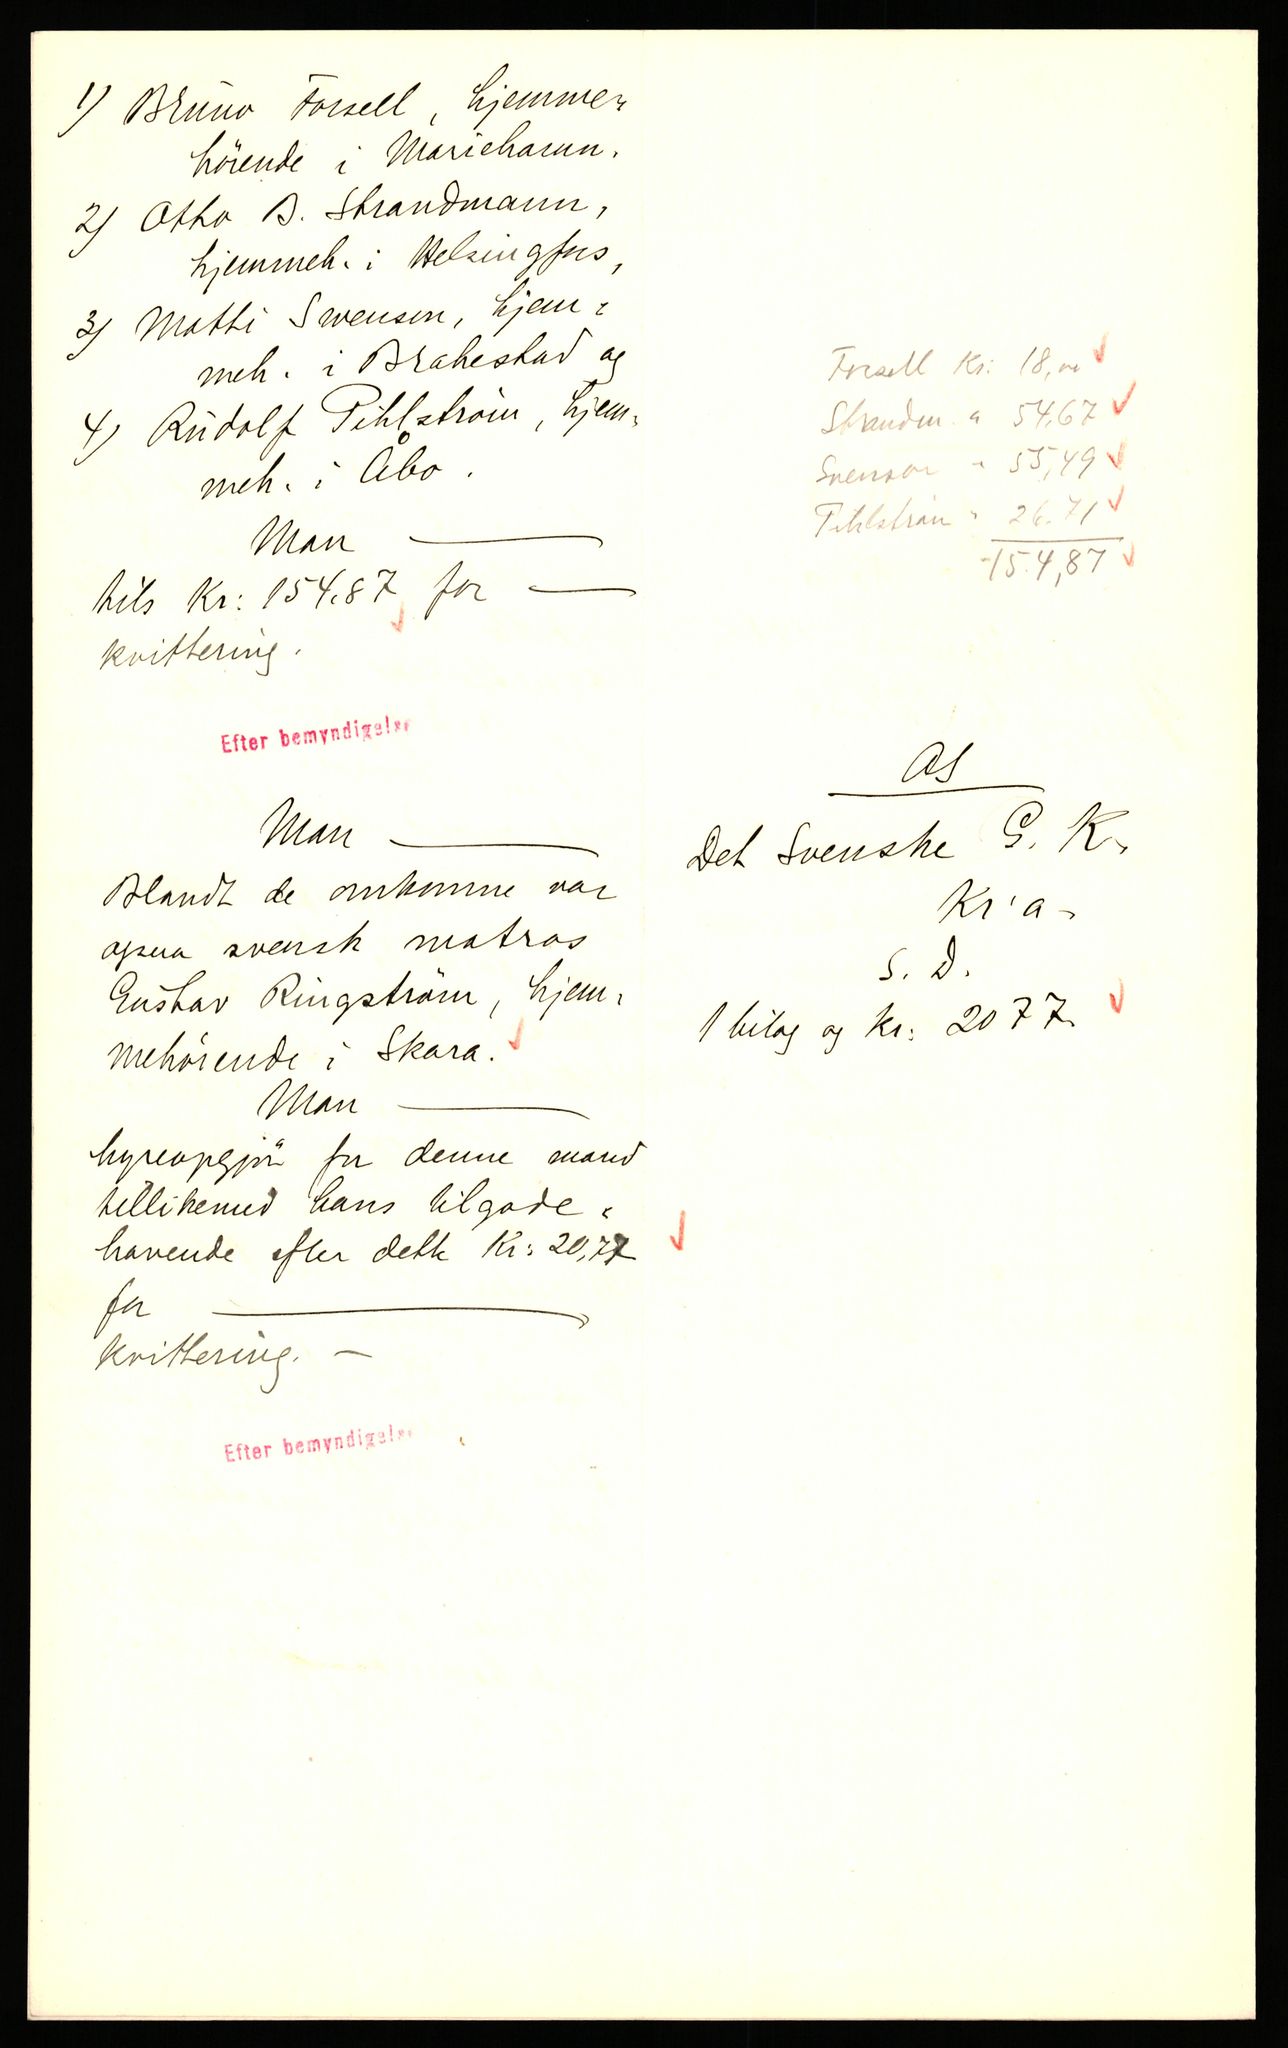 1) Bruno Forsell, hjemme-
hörende i Mariehamn.
2) Otto B. Strandmann,
hjemmeh. i Helsingfors,
3) Matti Swensen, hjem-
meh. i Brahestad og
4) Rudolf Pihlström, hjem-
meh. i Åbo.
Man
tils Kr: 154.87 for
kvittering.
Efter bemyndigelse
Forsell Kr: 18,00
Strandm. " 54,67
Svenson " 55,49
Pihlström " 26.71
154,87
Man
Blandt de omkomne var
ogsaa svensk matros
Gustav Ringström, hjem-
mehörende i Skara.
Man
hyreopgjör for denne mand
tillikemed hans tilgode-
havende efter dette Kr: 20,77
for
kvittering. -
Efter bemyndigelse
Det Svenske G. K.
Kr'a-
S. D.
1 bilag og kr: 2077.